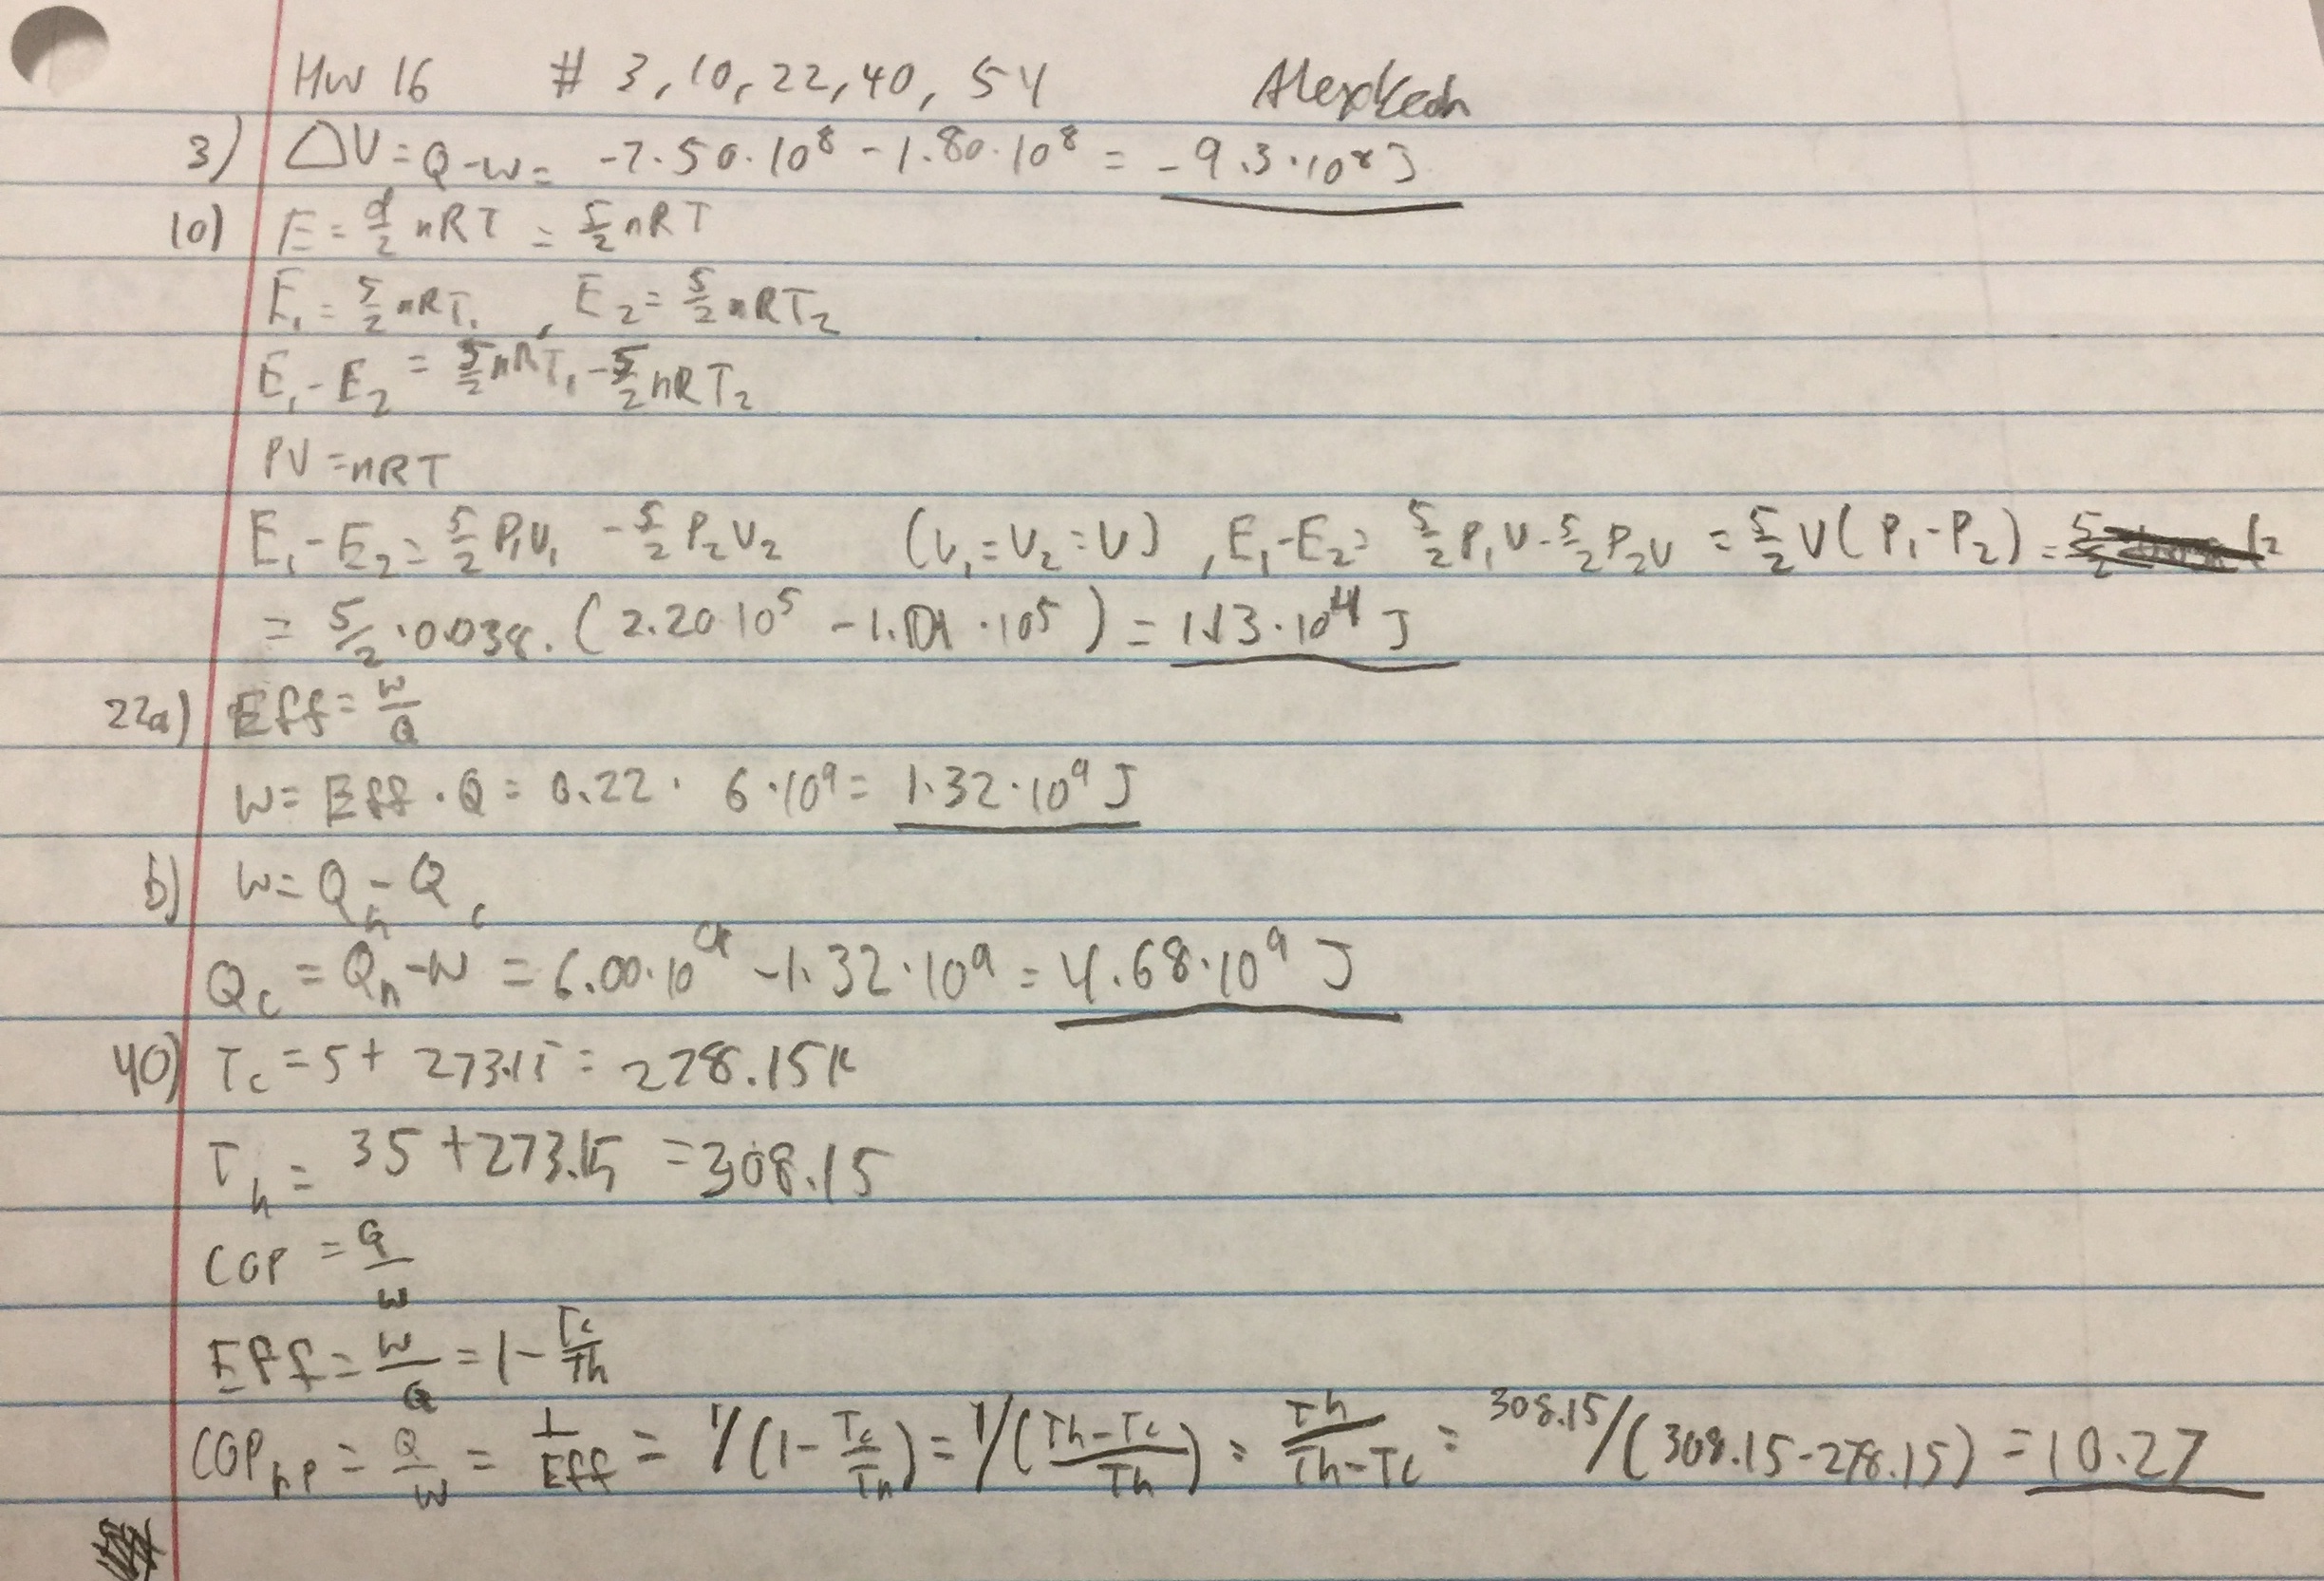 HW 16 # 3, 10, 22, 40, 54
3) ΔU = Q - W = -7.50·10⁸ - 1.80·10⁸ = -9.3·10⁸ J
10) E = d/2 nRT = 5/2 nRT
E₁ = 5/2 nRT₁ , E₂ = 5/2 nRT₂
E₁ - E₂ = 5/2 nRT₁ - 5/2 nRT₂
PV = nRT
E₁ - E₂ = 5/2 P₁V₁ - 5/2 P₂V₂ (V₁ = V₂ = V) , E₁ - E₂ = 5/2 P₁V - 5/2 P₂V = 5/2 V(P₁ - P₂) =
= 5/2 · 0.038 · (2.20·10⁵ - 1.01·10⁵) = 1.13·10⁴ J
22a) Eff = W/Q
W = Eff · Q = 0.22 · 6·10⁹ = 1.32·10⁹ J
b) W = Qh - Qc
Qc = Qh - W = 6.00·10⁹ - 1.32·10⁹ = 4.68·10⁹ J
40) Tc = 5 + 273.15 = 278.15K
Th = 35 + 273.15 = 308.15
COP = Q/W
Eff = W/Q = 1 - Tc/Th
COPhp = Q/W = 1/Eff = 1/(1 - Tc/Th) = 1/((Th-Tc)/Th) = Th/(Th-Tc) = 308.15/(308.15-278.15) = 10.27